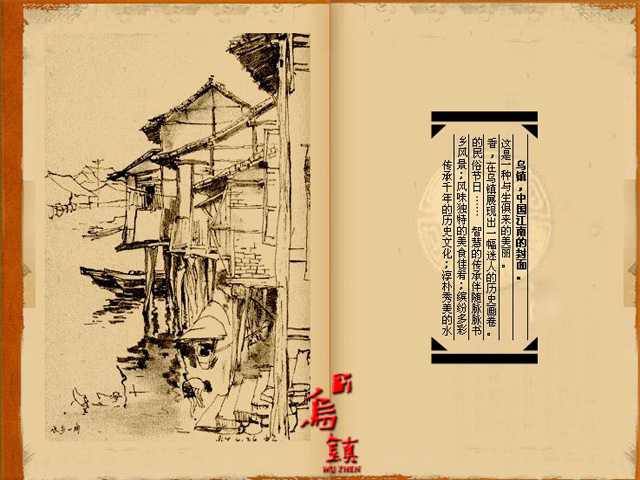 传承千年的历史文化；淳朴秀美的水
乡风景；风味独特的美食佳肴；缤纷多彩
的民俗节日…… 智慧的传承伴随脉脉书
香，在乌镇展现出一幅迷人的历史画卷。
这是一种与生俱来的美丽。
乌镇，中国江南的封面。
水乡一角
烏鎮
WU ZHEN